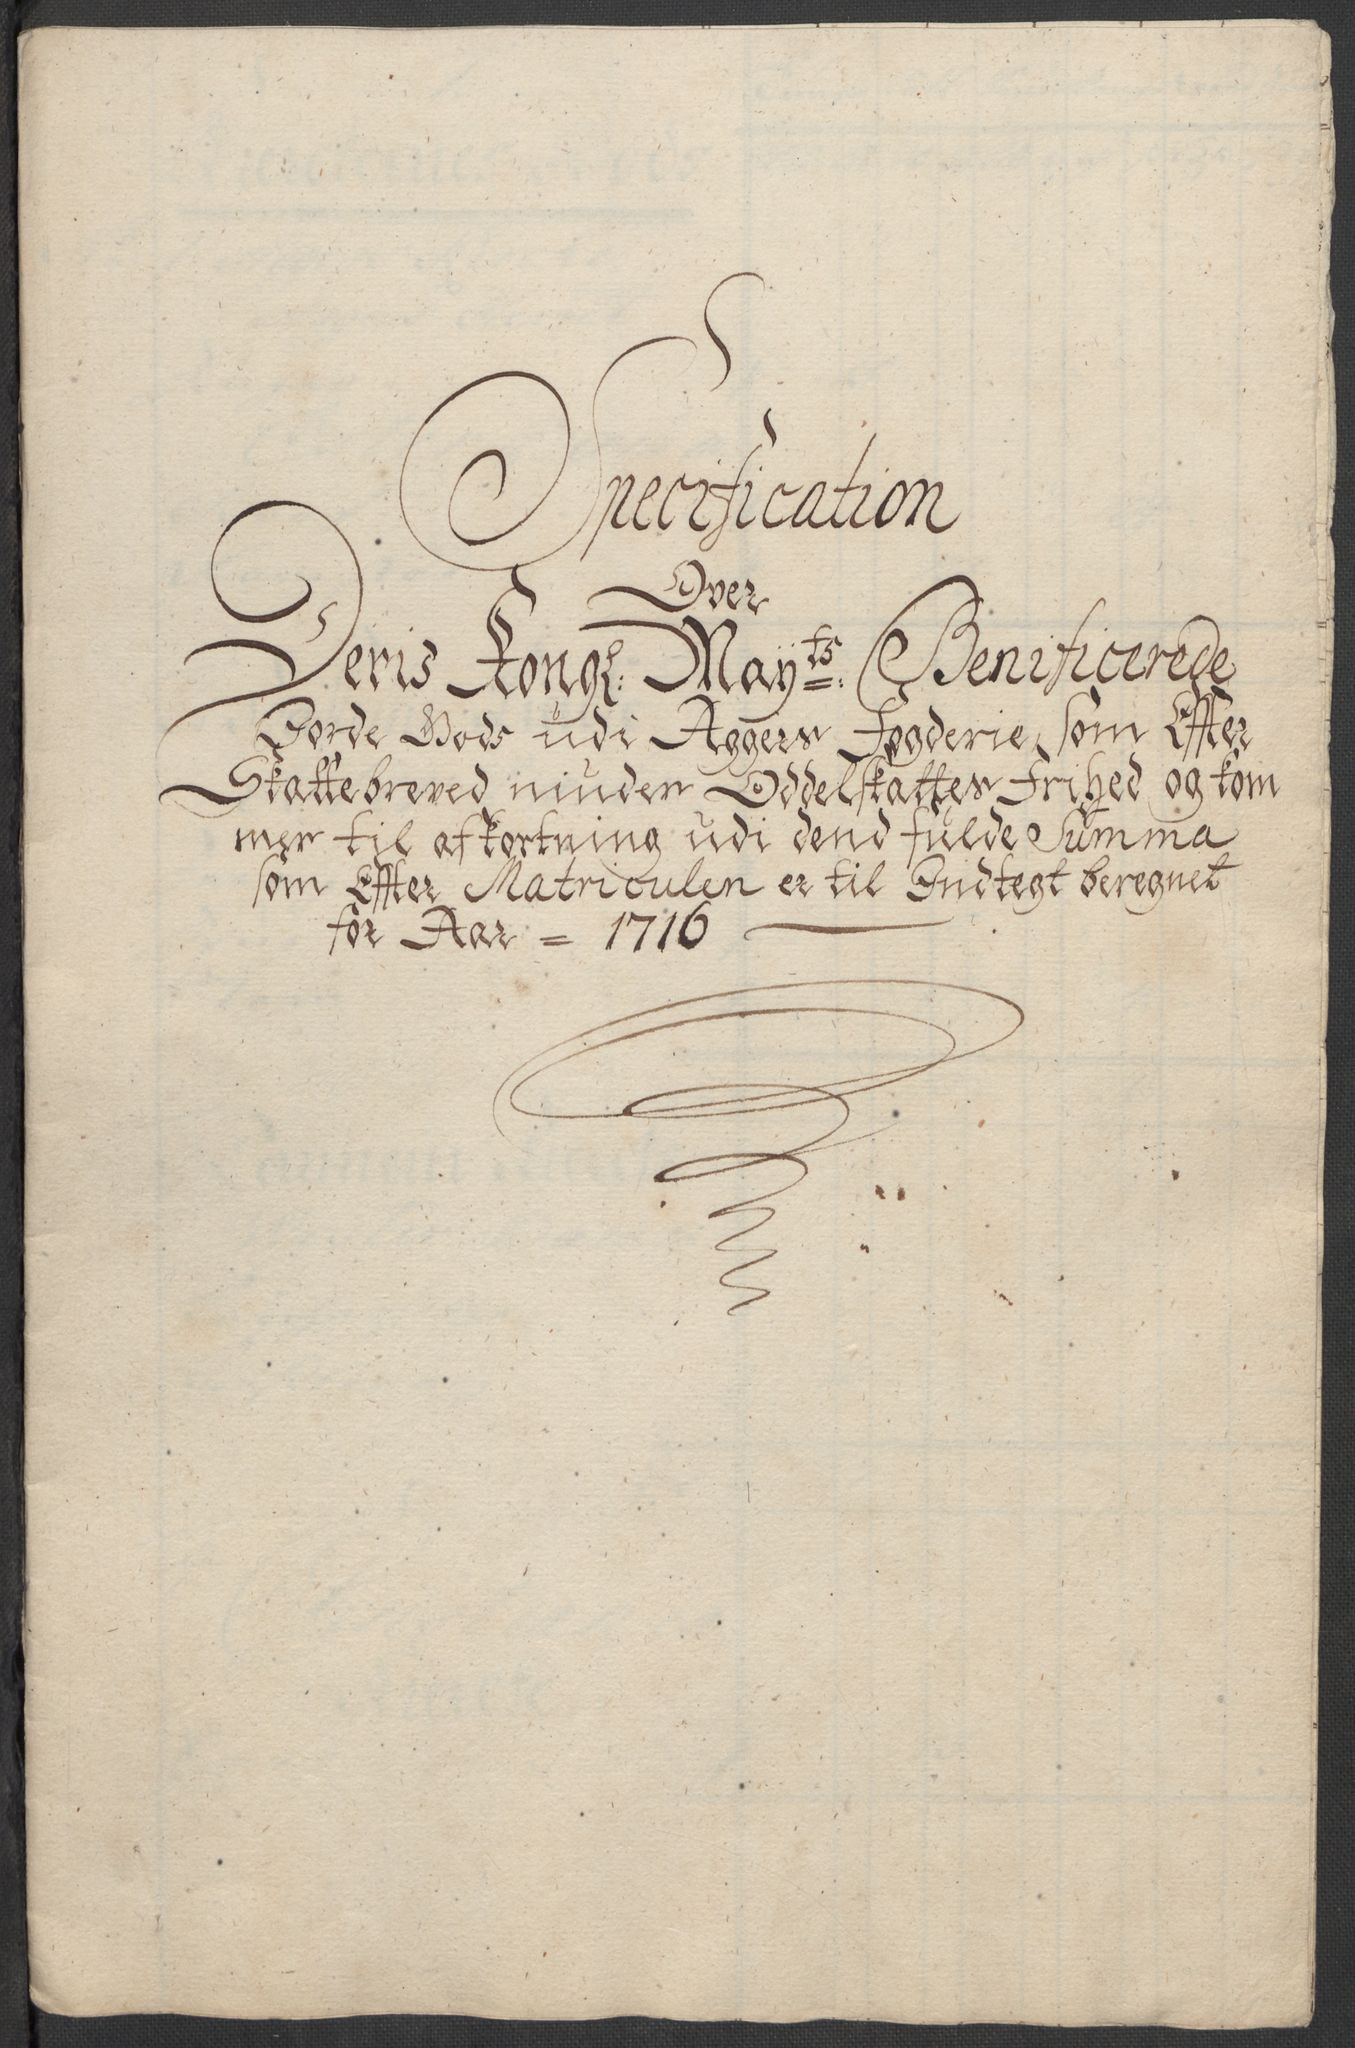 Specification
Over
Deris Kongl: Maÿts: Benificerede
Jorde Gods udi Aggers Fogderie, som Effter
Skattebreved niuder Oddelskattes Frihed og kom
mer til afkortning udi dend fulde Summa
som Effter Matriculen er til Indtegt beregnet
for Aar = 1716